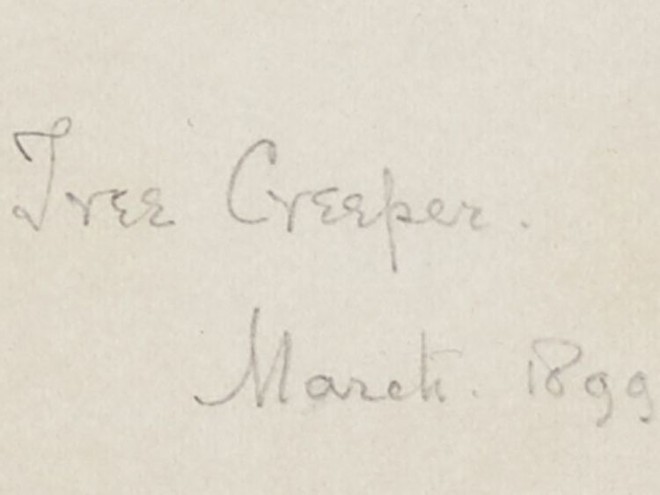 Tree Creeper.
March. 1899